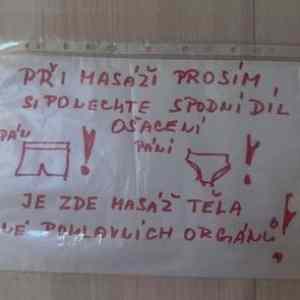 PŘI MASÁŽÍ PROSÍM
SI PONECHTE SPODNÍ DÍL
OŠACENÍ
PÁN ! PÁNÍ !
JE ZDE MASÁŽ TĚLA
NÉ POHLAVNÍCH ORGÁNŮ